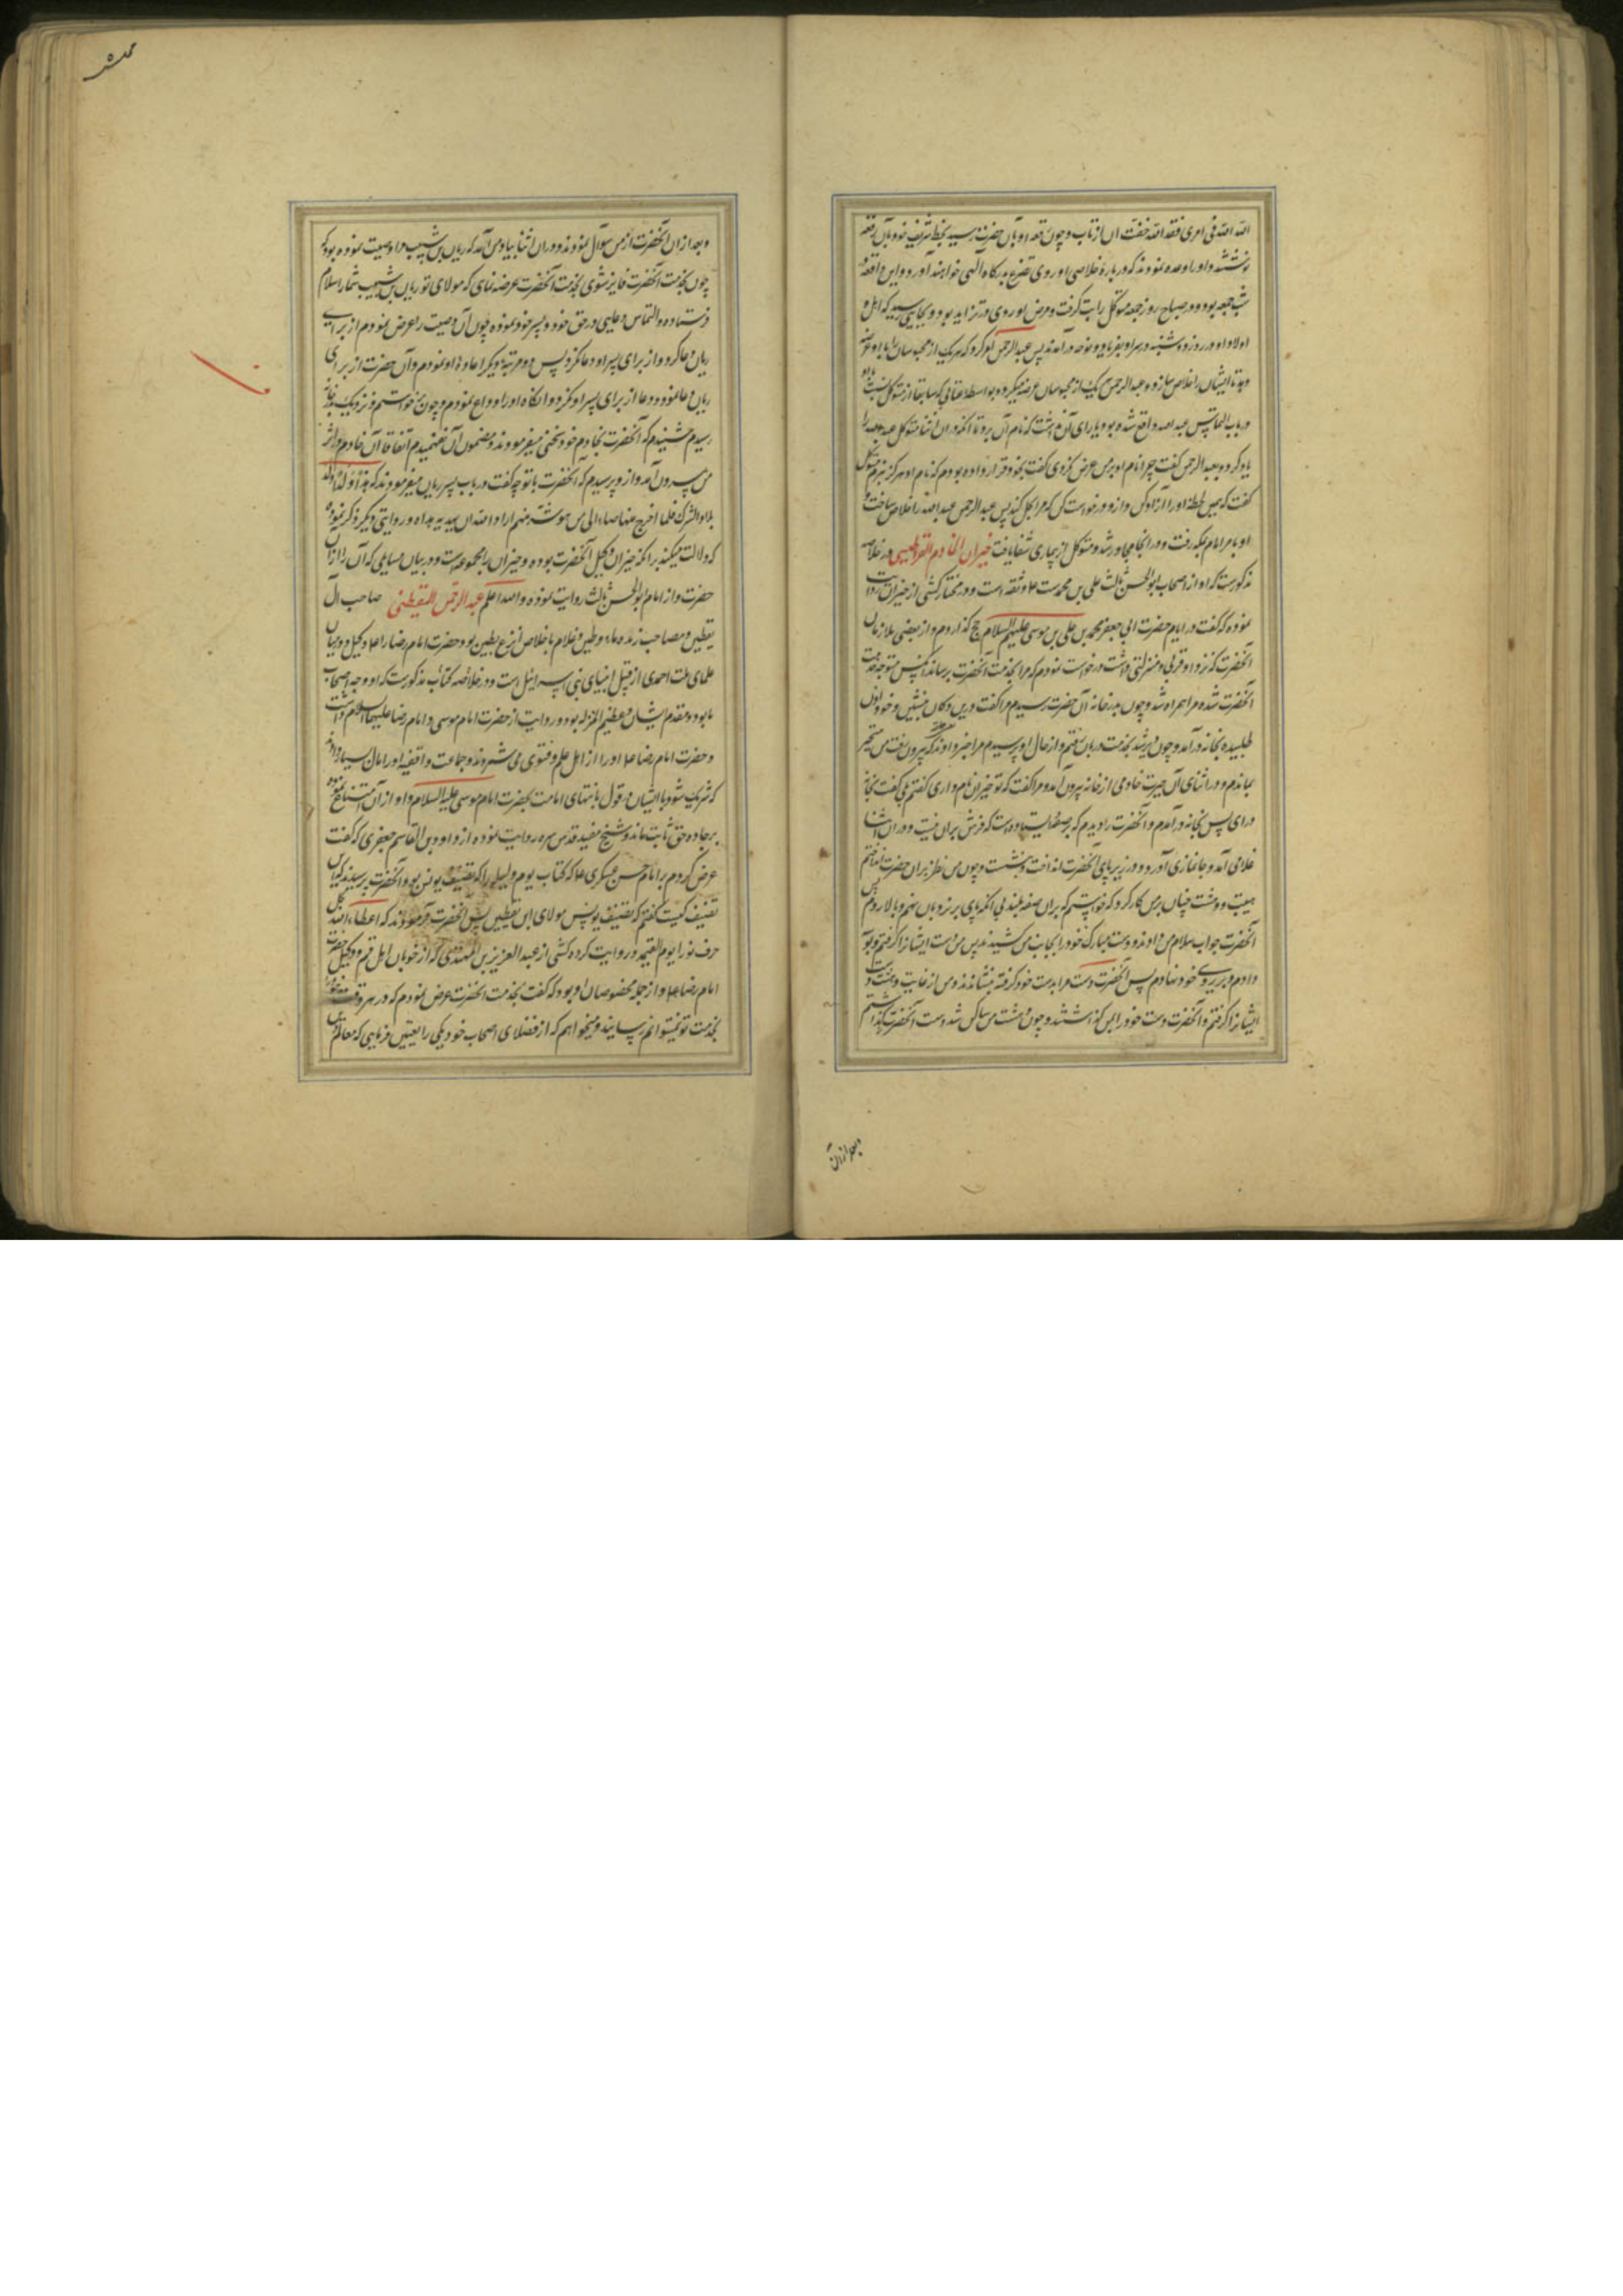 الله الله فی امری فقد الله خفت ان ارتاب و چون رقعه او بآن حضرت رسید بخط شریف خود بآن رقعه
نوشتند و او را وعده نمودند که در باره خلاصی او روی تضرع بدرگاه آلهی خواهند آورد و این واقعه در
شب جمعه بود و در صباح روز جمعه متوکل را تب گرفت و مرض او روی در تزاید بود و بجایی رسید که اهل و
اولاد او در روز دوشنبه در سر او بفریاد و نوحه درآمدند پس عبدالرحمن امر کرد که هر یک از محبوسان را با او عرض
و بدنا ایشان را خلاص سازد و عبدالرحمن یک یک از محبوسان عرضه میکرد و بواسطه عتابی که سابقا از متوکل نسبت باو
در باب التماس عبد الله واقع شده بود یارای آن نداشت که نام آن برد تا آنکه در آن اثنا متوکل عبد الله را
یاد کرد و بعبد الرحمن گفت چرا نام او بر من عرض نکردی گفت بخود قرار داده بودم که نام او هرگز نبرم متوکل
گفت که همین لحظه او را آزاد کن و ازو درخواست کن که مرا بحل کند پس عبد الرحمن عبد الله را خلاص ساخت و
او بامر امام بمکه رفت و در انجا مجاور شد و متوکل از بیماری شفا یافت خیران الخادم القراطیسی در خلاصه
مذکورست که او از اصحاب ابوالحسن ثالث علی بن محمدست ع و ثقه است و در مختار کشی از خیران روایت
نموده که گفت در ایام حضرت ابی جعفر محمد بن علی بن موسی علیهم السلام حج گذاردم و از بعضی ملازمان
آنحضرت که نزد او قربی و منزلتی داشت درخواست نمودم که مرا بخدمت آنحضرت برساند آنکس متوجه خدمت
آنحضرت شده مرا همراه شد و چون بدر خانه آن حضرت رسیدم مرا گفت درین دکان بنشین و خود اذن
طلبیده بخانه درآمد و چون دیر شد بخدمت دربان رفتم و از حال او پرسیدم مرا خبر دادند که بیرون رفت من متحیر
بماندم و در اثنای آن حیرت خادمی از خانه بیرون آمد و مرا گفت که تو خیران نام داری گفتم بلی گفت بخانه
درای پس بخانه درآمدم و آنحضرت را دیدم که بر صفه ایستاده است که فرش بران نیست و در ان اثنا
غلامی آمد و جانمازی آورد و در زیر پای آنحضرت انداخت و بنشست و چون من نظر بران حضرت انداختم
هیبت و دهشت چنان بر من کار کرد که خواستم که بران صفه بلند بی آنکه پای بر نردبان نهم و بالا روم پس
آنحضرت جواب سلام من دادند و دست مبارک خود را بجانب من کشیدند پس من دست ایشانرا گرفتم و بوسه
دادم و بر روی خود نهادم پس آنحضرت دست مرا بدست خود گرفته بنشاندند و من از غایت دهشت دست
ایشانرا گرفتم و آنحضرت دست خود را بمن گذاشتند و چون دهشت من ساکن شد دست آنحضرت بگذاشتم
بعد ازان
و بعد از ان آنحضرت از من سوال نمودند و در ان اثنا بیاد من آمد که ریان بن شبیب مرا وصیت نموده بود که
چون بخدمت آنحضرت فایز شوی بخدمت آنحضرت عرضه نمای که مولای تو ریان بن شبیب شما را سلام
فرستاده و التماس دعایی در حق خود و پسر خود نموده چون آن وصیت را عرض نمودم از برای
ریان دعا کرد و از برای پسر او دعا نکرد پس دو مرتبه دیگر اعاده او نمودم و آن حضرت از برای
ریان دعا نمود و دعا از برای پسر او نکرد و انگاه او را وداع نمودم و چون برخواستم و نزدیک بدر خانه
رسیدم شنیدم که آنحضرت بخادم خود سخنی میفرمودند و مضمون آن نفهمیدم اتفاقا آن خادم در اثر
من بیرون آمد و از و پرسیدم که آنحضرت با تو چه گفت در باب پسر ریان میفرمودند که هذا ولد
بلاد الشرک فلما اخرج منها صار الی من هو شر منهم اراد الله ان یهدیه هداه و روایتی دیگر ذکر نموده
که دلالت میکند بر انکه خیران وکیل آنحضرت بوده و خیران را مجموعه است در بیان مسایلی که آن را از ان
حضرت و از امام ابوالحسن ثالث روایت نموده و الله اعلم عبدالرحمن الیقطینی صاحب آل
یقطین و مصاحب زنده ماء و طین و غلام با خلاص انزع بطین بود حضرت امام رضا را ع وکیل و در میان
علمای ملت احمدی از قبیل انبیای بنی اسرائیل است و در خلاصه کتاب مذکورست که او وجه اصحاب
ما بود و مقدم ایشان و عظیم المنزله بود و روایت از حضرت امام موسی و امام رضا علیهما السلام داشت
و حضرت امام رضا ع او را از اهل علم و فتوی می شمردند و جماعت واقفیه او را مال بسیار دادند
که شریک شود با ایشان در قول بانتهای امامت بحضرت امام موسی علیه السلام و او از آن امتناع نموده
بر جاده حق ثابت ماند و شیخ مفید قدس سره روایت نموده از داود بن القاسم جعفری که گفت
عرض کردم بر امام حسن عسکری ع که کتاب یوم و لیله را که تصنیف یونس بود آنحضرت پرسیدند که این
تصنیف کیست گفتم که تصنیف یونس مولای ابن یقطین پس آنحضرت فرمودند که اعطاه الله بکل
حرف نورا یوم القیمه و روایت کرده کشی از عبدالعزیز بن المهتدی که از خوبان اهل قم و وکیل حضرت
امام رضا ع و از جمله مخصوصان او بود که گفت بخدمت آنحضرت عرض نمودم که در هر وقت خود را
بخدمت تو نمیتوانم رسانید و میخواهم که از فضلای اصحاب خود یکی را تعیین فرمایی که معالم دین